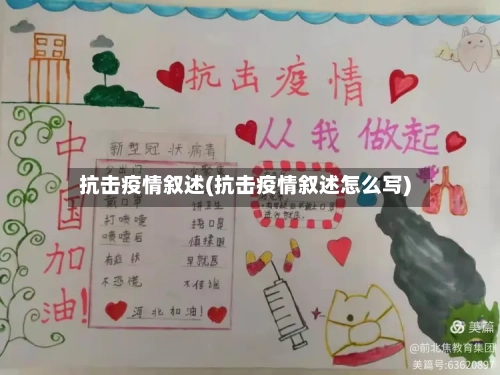 抗击疫情
从我做起
中国加油!
新型冠状病毒
抗击疫情叙述(抗击疫情叙述怎么写)
戴口罩
打喷嚏
捂口鼻
喷嚏后
慎揉眼
有症状
早就医
不恐慌
不传谣
河北加油!
美篇
@前北焦教育集团
美篇号:63620897